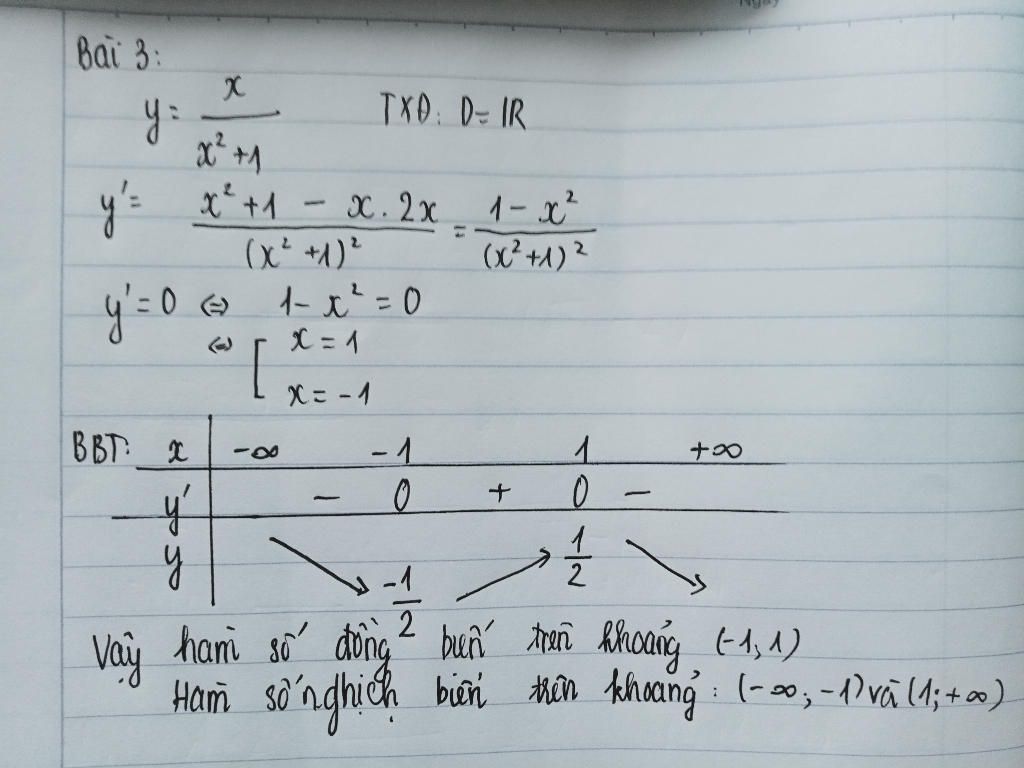 Ngày
Bài 3:
y = x/(x² + 1) TXĐ: D = IR
y' = (x² + 1 - x . 2x)/(x² + 1)² = (1 - x²)/(x² + 1)²
y' = 0 ⇔ 1 - x² = 0
⇔ [ x = 1
x = -1
BBT: x -∞ -1 1 +∞
y' - 0 + 0 -
y ↘ -1/2 ↗ 1/2 ↘
Vậy hàm số đồng biến trên khoảng (-1, 1)
Hàm số nghịch biến trên khoảng: (-∞; -1) và (1; +∞)